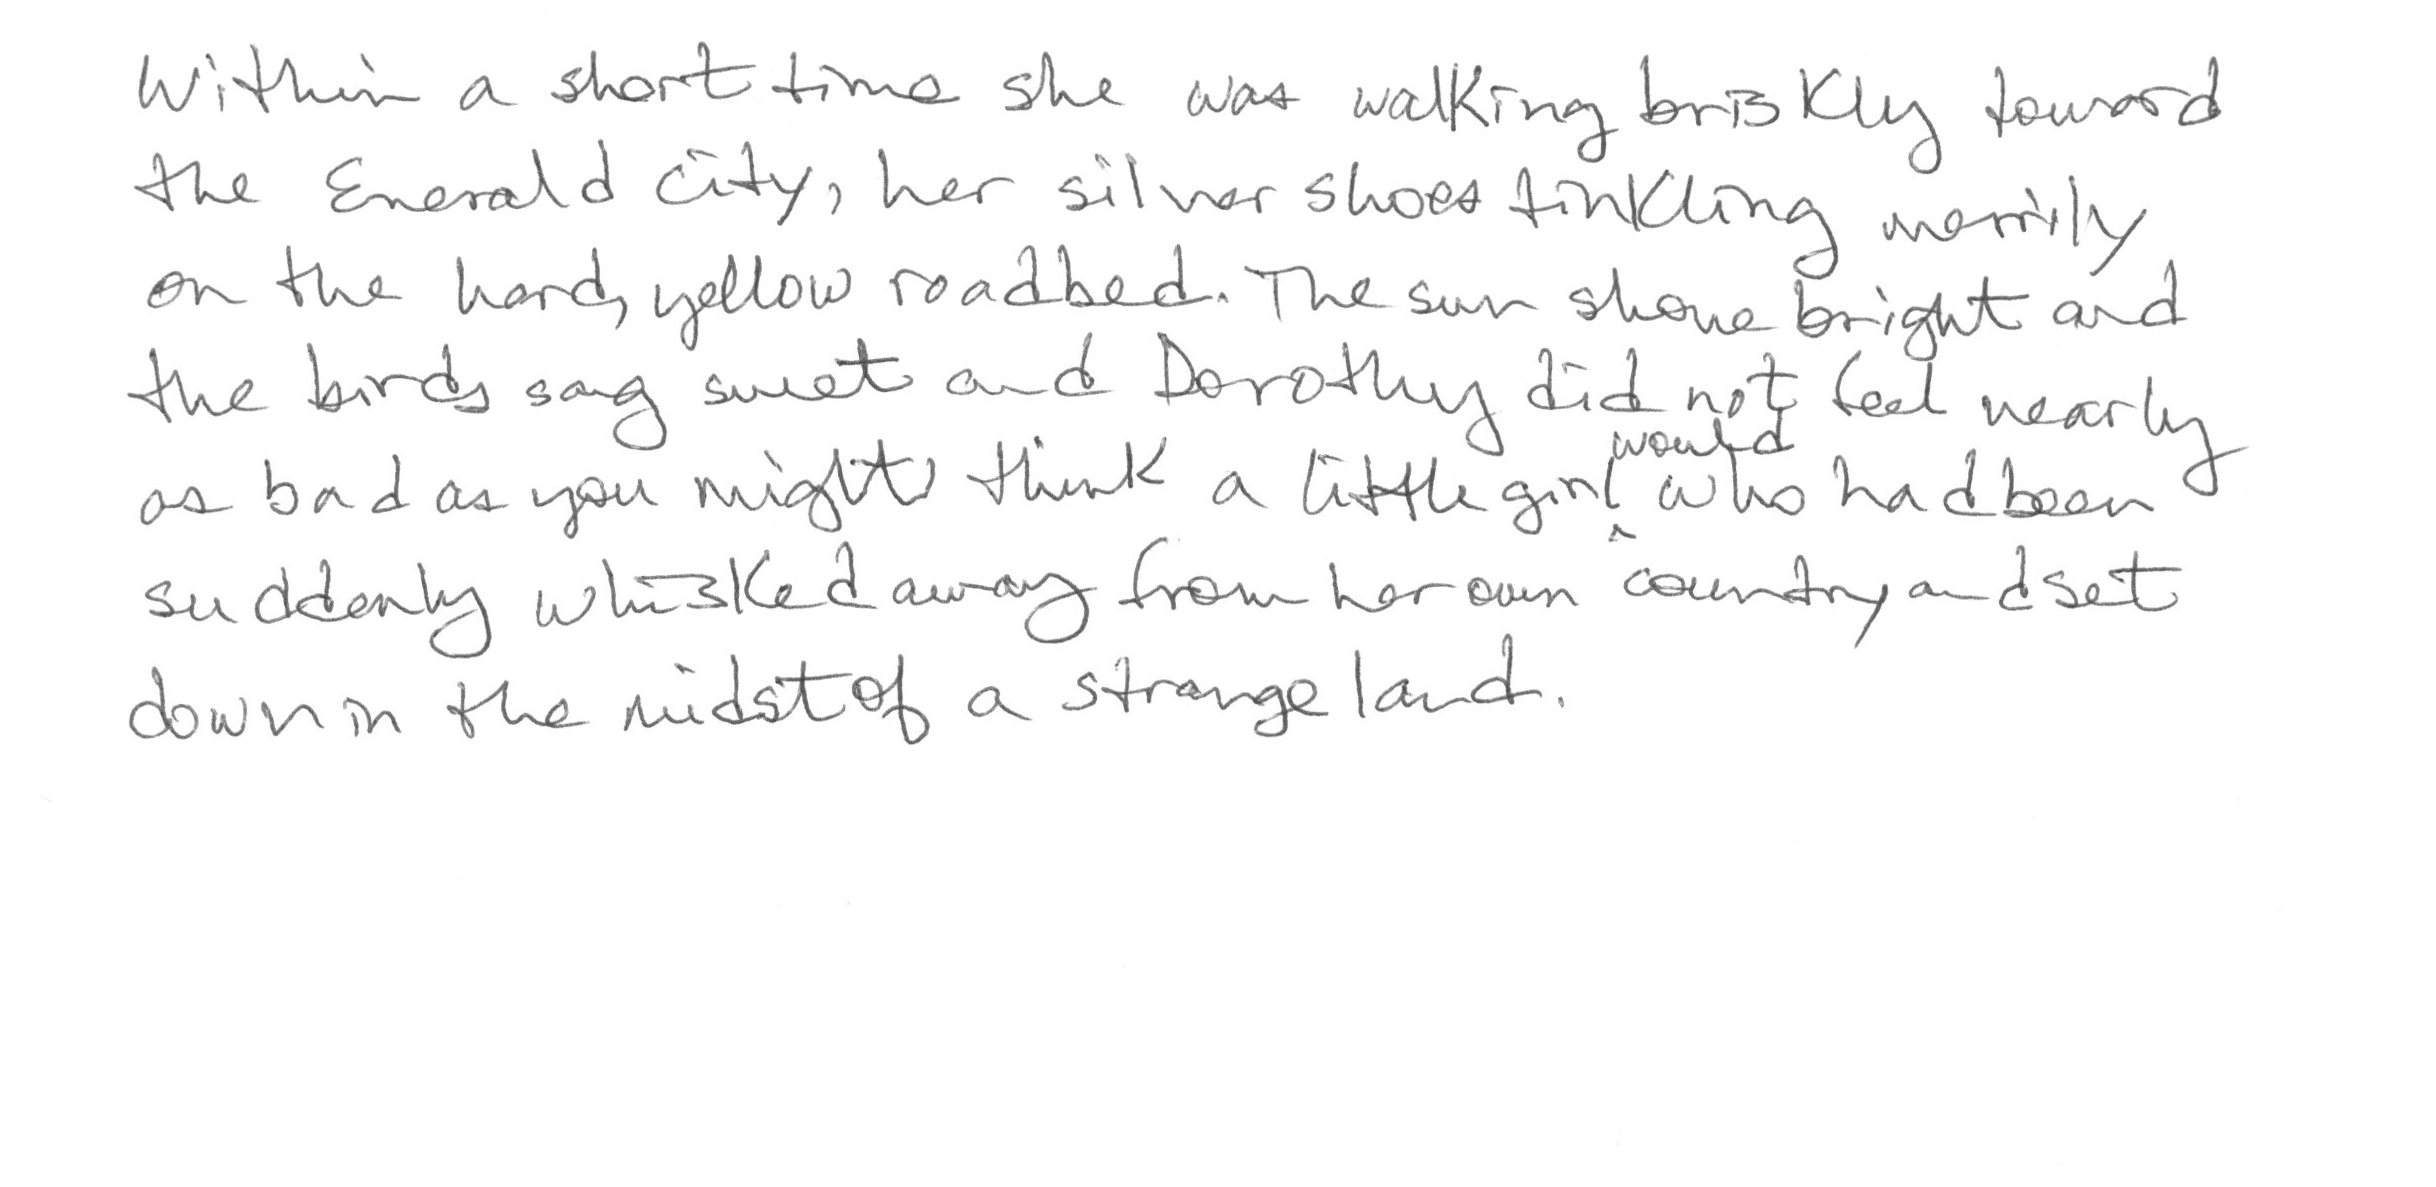 Within a short time she was walking briskly toward
the Emerald City, her silver shoes tinkling merrily
on the hard, yellow roadbed. The sun shone bright and
the birds sang sweet and Dorothy did not feel nearly
as bad as you might think a little girl would who had been
suddenly whisked away from her own country and set
down in the midst of a strange land.